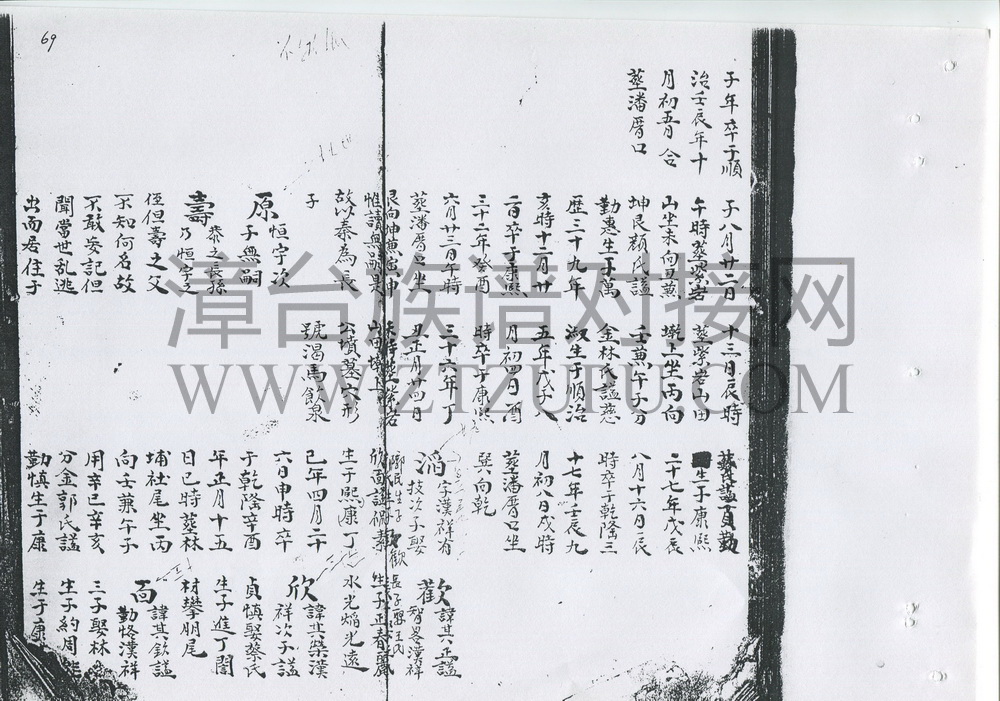 69
子年卒于順
治壬辰年十
月初五日合
塟潘厝口
子八月廿二日
午時塟紫岩
山坐未向丑兼
坤艮顏氏諡
勤惠生于萬
歷三十九年
亥時十二月廿
二日卒于康熙
三十二年癸酉
六月廿三日午時
塟潘厝口坐
艮向坤兼寅申
惟讀無嗣果
故以泰為長
子
原 恒宇次
子無嗣
壽 泰之長孫
乃恒宇之
侄但壽之父
不知何名故
不敢妄記但
聞當世乱逃
出而居住于
十三日辰時
塟紫岩山田
墩上坐丙向
壬兼午子分
金林氏諡慈
淑生于順治
五年戊子八
月初四日酉
時卒于康熙
三十六年丁
丑正月廿四日
未時塟紫岩
山田墩上
公墳墓穴形
號渴馬飲泉
蔡氏諡貞勤
生于康熙
二十七年戊辰
八月十六日辰
時卒于乾隆三
十七年壬辰九
月初八日戌時
塟潘厝口坐
巽向乾
滔 字漢祥有
技次子娶
鄭氏生子歡
欣面諡
生于熙康丁
已年四月二十
六日申時卒
于乾隆辛酉
年正月十五
日巳時塟林
埔社尾坐丙
向壬兼午子
用辛巳辛亥
分金郭氏諡
勤慎生于康
歡 諱其正諡
智畧漢祥
長子娶王氏
生子正春麗
水光焔光遠
欣 諱其榮漢
祥次子諡
貞慎娶蔡氏
生子進丁閣
材攀朋尾
面 諱其欽諡
勤恪漢祥
三子娶林
生子約周能
生于康
漳台族谱对接网
WWW.ZTZUPU.COM